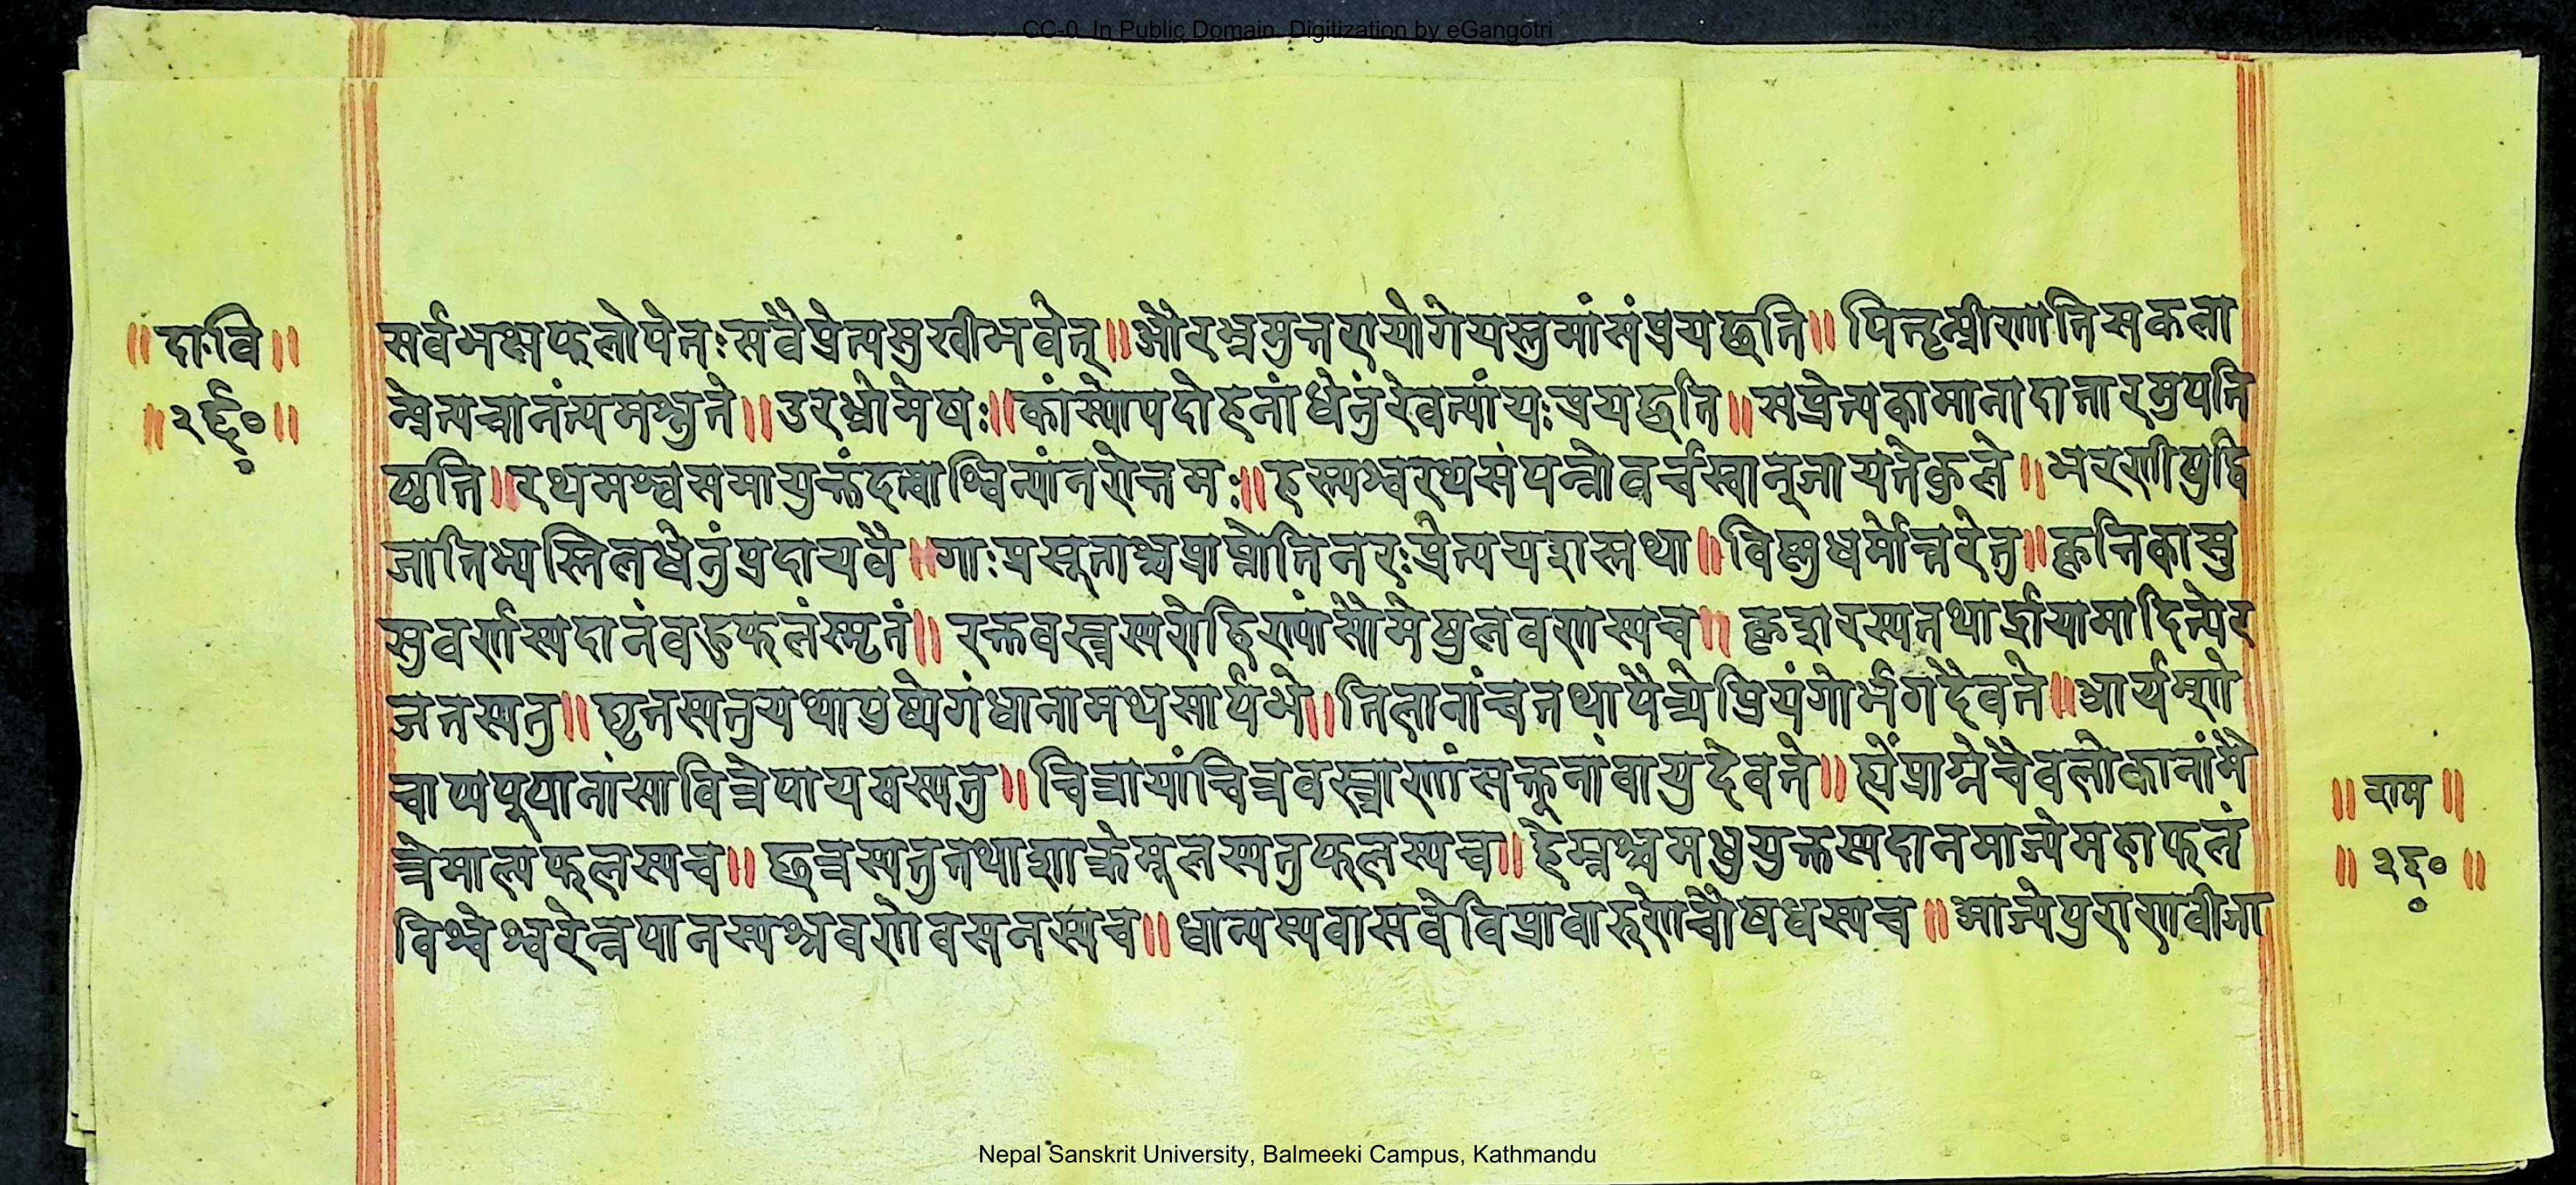 CC-0. In Public Domain. Digitization by eGangotri
॥दा·वि॥
॥२६०॥
सर्वभक्षफलोपेतःसवैप्रेत्यसुखीभवेत्॥औरभ्रमुत्तरायोगेयस्तुमांसंप्रयछति॥पितॄन्प्रीणातिसकला
न्प्रेत्यचानंत्यमश्नुते॥उरभ्रोमेषः॥कांस्योपदोहनांधेनुंरेवत्यांयःप्रयछति॥सप्रेत्यकामानादातारमुपति
ष्ठति॥रथमश्वसमायुक्तंदत्वाश्विन्यांनरोत्तमः॥हस्त्यश्वरथसंपन्नोवर्चस्वान्जायतेकुले॥भरणीषुद्वि
जातिभ्यस्तिलधेनुंप्रदायवै॥गाःप्रसूताश्चप्राप्नोतिनरःप्रेत्ययशस्तथा॥विष्णुधर्मोत्तरेतु॥कृत्तिकासु
सुवर्णस्यदानंवहुफलंस्मृतं॥रक्तवस्त्रस्यरोहिण्यांसौमेषुलवणस्यच॥कृशरस्यतथार्द्रायामादित्येर
जतस्यतु॥घृतस्यतुयथापुष्येगंधानामथसार्पभे॥तिलानांचतथापैत्र्येप्रियंगोर्भगदैवते॥आर्यम्णे
चाप्यपूपानांसावित्रेपायसस्यतु॥चित्रायांचित्रवस्त्राणांसक्तूनांवायुदेवते॥ह्येंप्राग्नेचैवलोकानांमै
त्रेमाल्यफलस्यच॥छत्रस्यतुतथाशाक्रेमूलस्यतुफलस्यच॥हेम्नश्चमधुयुक्तस्यदानमाज्येमहाफलं
विश्वेश्वरेन्नपानस्यश्रवणेवसनस्यच॥धान्यस्यवासवेविप्रावारुणेचौषधस्यच॥आज्येपुराणवीजा
॥राम॥
॥२६०॥
Nepal Sanskrit University, Balmeeki Campus, Kathmandu